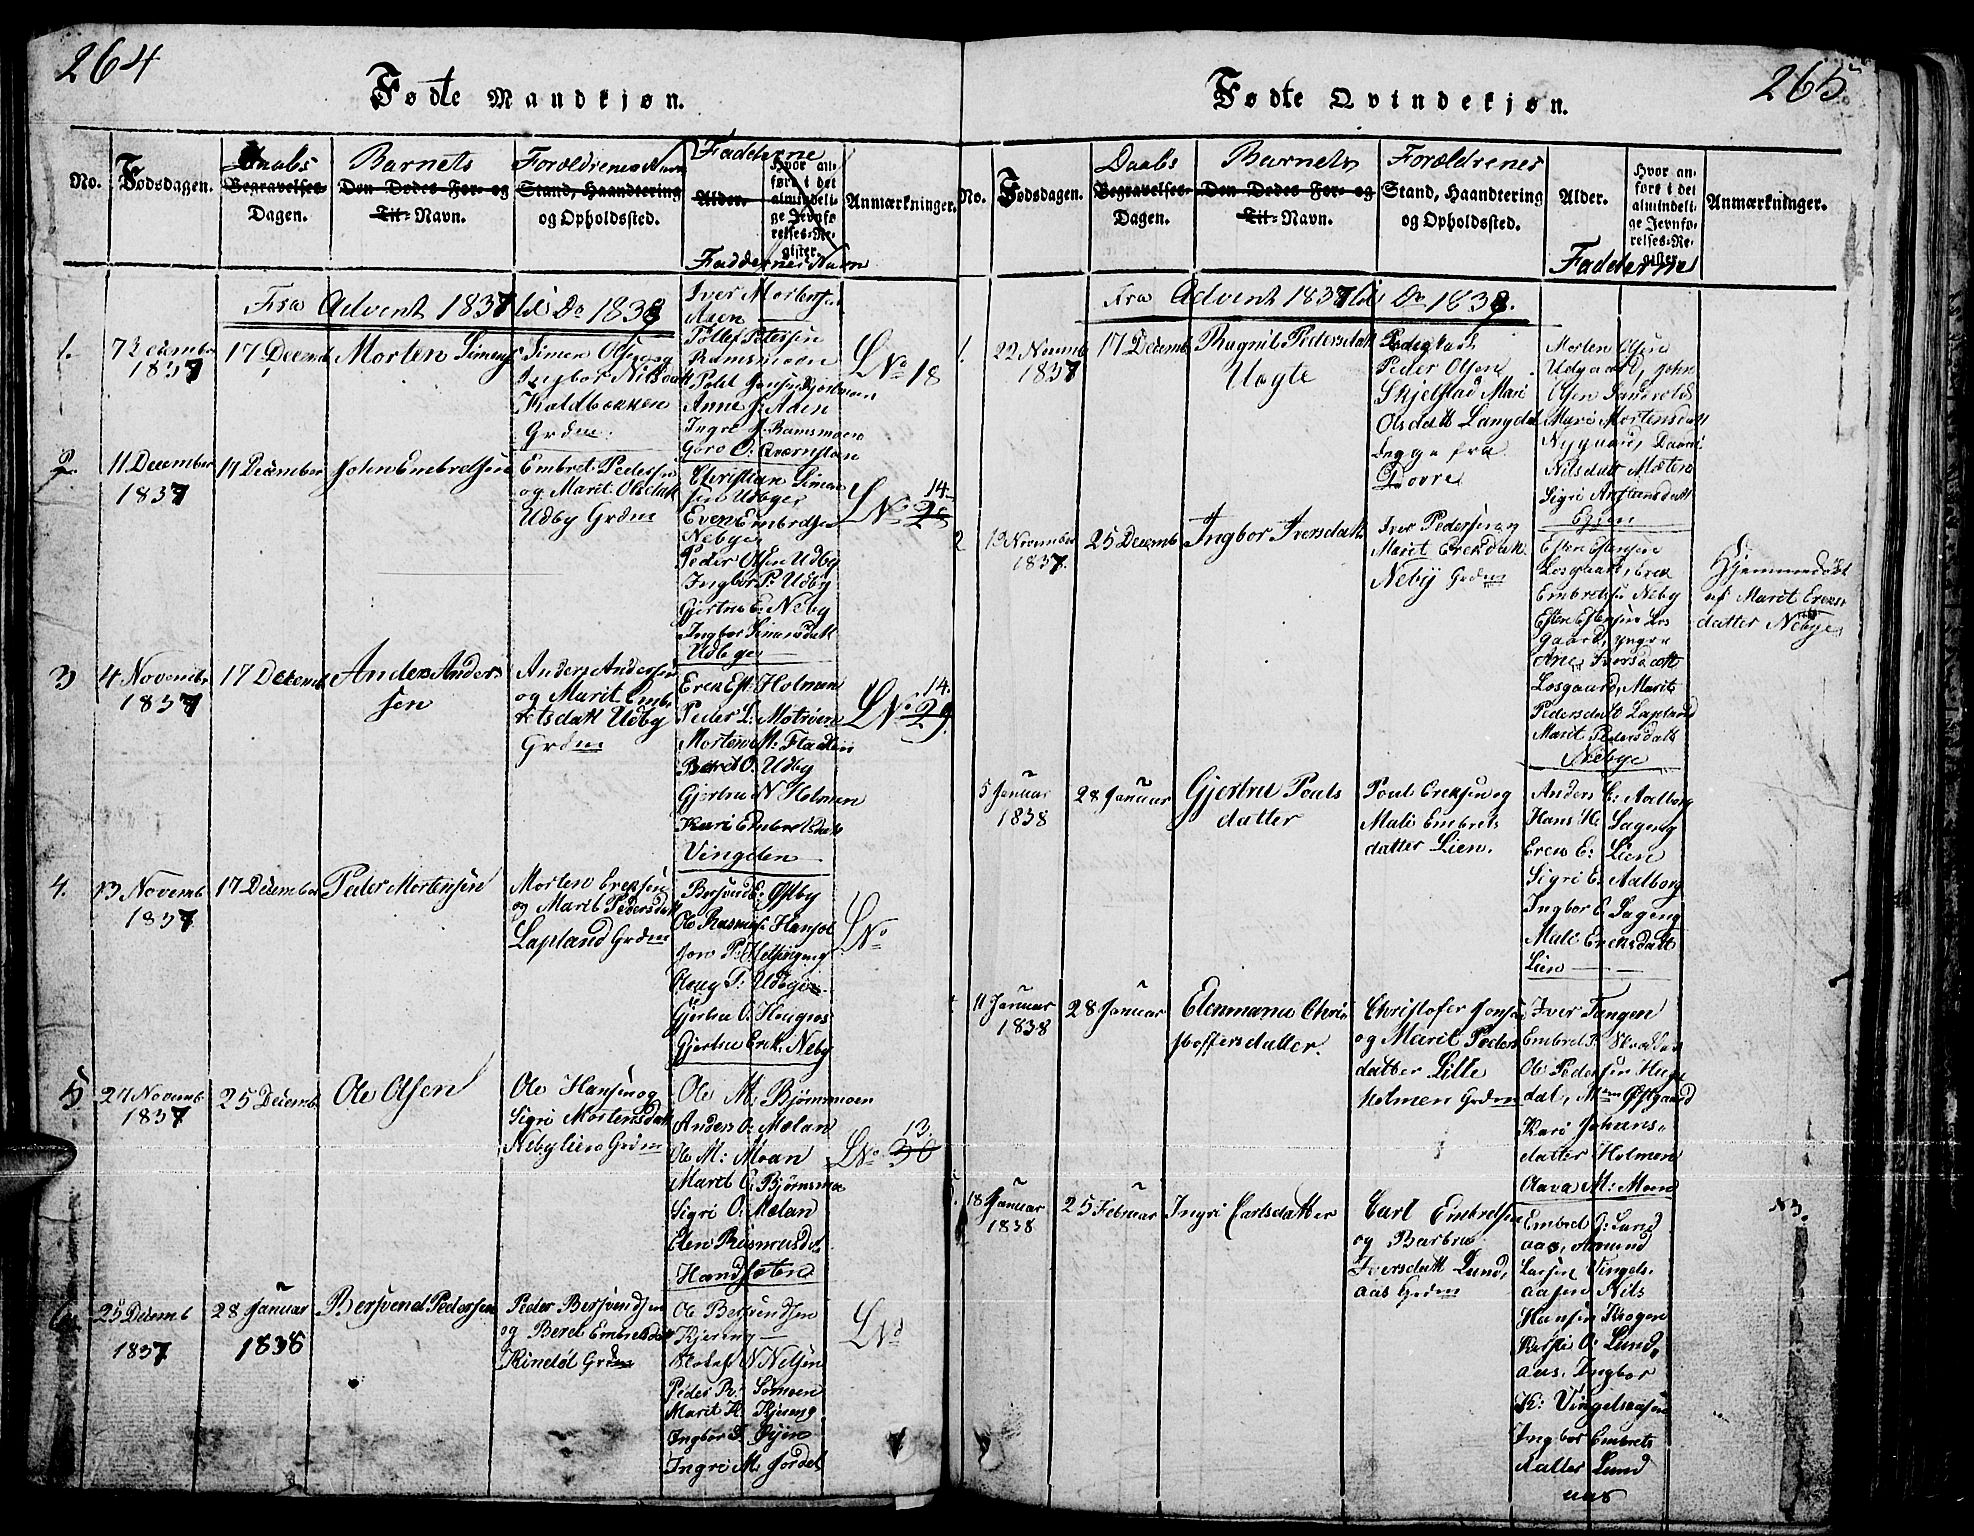 264
Fødte Mandkjøn.
No.
Fødsdagen.
Daabs
Begravelses-
Dagen.
Barnets
Den Dødes For- og
Til-Navn.
Forældrenes Navn
Stand, Haandtering
og Opholdssted.
Fadderne
Alder.
Hvor an-
ført i det
almindeli-
ge Jevnfø-
relses-Re-
gister.
Faddernes Navn
Anmærkninger.
Fra Advent 1837 til Do 1838
1.
7 December
1837
17 Decemb
Morten Simens
Simen Olsen og
Ingbor Nilsdatt
Koldbækken
Grdm.
Iver Mortensen
Aaen
Tollef Petersen
Ramsmoen
Anne J. Aaen
Ingri J. Ramsmoen
Goro O. Qværnstan
LNo 18
2.
11 December
1837
17 December
John Embretsen
Embret Pedersen
og Marit Olsdatt
Udby Grdm
Christian Simen
sen Udbye
Even Embretsen
Nebye
Peder Olsen Udby
Ingbor P. Udby
Gjertru E. Neby
Ingbor Simensdatt
Udbye
LNo 28
14.
3
4 Novembr
1837
17 Decemb
Anders Anders
sen
Anders Andersen
og Marit Emb
retsdatt Udby
Grdm
Erek Est. Holman
Peder L. Motrøen
Morten M. Flaaten
Beret O. Udby
Gjertru N Holmen
Kari Embretsdatt
Vingelen
LNo 29.
14.
4.
13 Novemb
1837
17 December
Peder Mortensen
Morten Ereksen
og Marit Pedersdatt
Lapland Grdm
Bersvend E. Østby
Ole Rasmus. Hansol
Joro P. Helsingeng
Olaug T. Udbye
Gjertru O. Haugros
Gjertru Erek. Neby
LNo
5
27 Novemb
1837
25 Decemb
Ole Olsen
Ole Hansen og
Sigri Mortensdatt
Nebylien Grdm
Ole M. Bjørnmoen
Anders O. Mælan
Ole M. Moan
Marit O. Bjørnmoe
Sigri O. Mælan
Elen Rasmusd.
Handsæten
LNo 30
13.
6.
25 Decemb
1837
28 Januar
1838
Bersvend Pedersen
Peder Bersvendsen
og Beret Embretsdatt
Grdm
Ole Bersvendsen
Kjereng
N Nelsen
Peder R. Sømoen
Marit H. Kjereng
Ingbor I. Øyen
Ingri M. Jordet
LNo
265
Fødte Qvindekjøn.
No.
Fødsdagen.
Daabs
Begravelses-
Dagen.
Barnets
Den Dødes For- og
Til-Navn.
Forældrenes
Stand, Haandtering
og Opholdssted.
Alder.
Hvor an-
ført i det
almindeli-
ge Jevnfø-
relses-Re-
gister.
Fadderne
Anmærkninger.
Fra Advent 1837 til Do 1838.
1.
22 Novemb
1837
17 Decemb
Ragnil Pedersdatt
Uægte
Peder Olsen
Skjelstad Mari
Olsdatt Langdal
begge fra
Dovre
Morten Olsen
Udgaard, John
Olsen Sandvold
Mari Mortensdatt
Nygaard, Daardi
Nilsdatt Mæten
Sigri Anstensdatt
Eggen
2
19 November
1837.
25 Decemb
Ingbor Iversdatt
Iver Pedersen og
Marit Ereksdatt
Neby Grdm
Esten Estensen
Losgaard, Erek
Embretsen Neby
Esten Estensen Los
gaard, yngre
Ane Iversdatt
Losgaard, Marit
Pedersdatt Lapland
Marit Pedersdatt
Nebye
Hjemmedøbt
af Marit Ereks
datter Nebye
5 Januar
1838
28 Januar
Gjertru Pouls
datter
Poul Ereksen og
Mali Embrets
datter Lien.
Anders E. Aalborg
Hans H. Sageng
Erek E. Lien
Sigri E. Aalborg
Ingbor E. Sageng
Mali Ereksdatt
Lien
11 Januar
1838
28 Januar
Elenmana Chris
stoffersdatter.
Christofer Jonsen
og Marit Peders
datter Lille
holmen Grdm
Iver Tangen
Embret P.
Ole Pedersen Hage
dal, Østgaard
Kari Johans-
datter Holmen
Olava M: Moen
5.
18 Januar
1838
25 Februar
Ingri Carlsdatter
Carl Embretsen
og Barbru
Iversdatt Lund,
aas Grdm
Embret O: Lund
aas, Amund
Larsen Vingels-
aasen Nils
Hansen Krogen
O. Lund,
aas. Ingbor
K: Vingelsaasen
Ingbor Embrets
datter Lund
aas
N3.